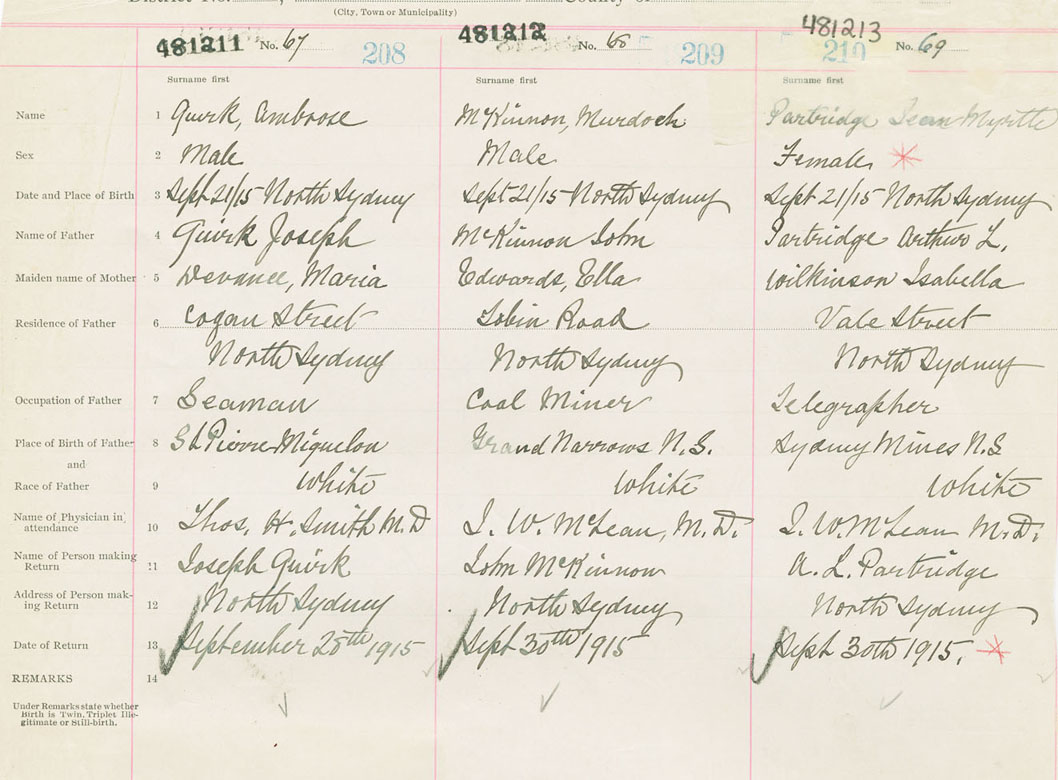 (City, Town or Municipality)
481211 No. 67 208
481212 No. 68 209
481213 No. 69 210
Surname first Surname first Surname first
Name 1 Quirk, Ambrose McKinnon, Murdoch Partridge Jean Myrtle
Sex 2 Male Male Female
Date and Place of Birth 3 Sept 21/15 North Sydney Sept 21/15 North Sydney Sept 21/15 North Sydney
Name of Father 4 Quirk Joseph McKinnon John Partridge Arthur L.
Maiden name of Mother 5 Devance, Maria Edwards, Ella Wilkinson Isabella
Residence of Father 6 Cogan Street Tobin Road Vale Street
North Sydney North Sydney North Sydney
Occupation of Father 7 Seaman Coal Miner Telegrapher
Place of Birth of Father 8 St Pierre Miquelon Grand Narrows N.S. Sydney Mines N.S
and
Race of Father 9 White White White
Name of Physician in attendance 10 Thos. H. Smith M.D J. W. McLean, M.D. J. W. McLean M.D.
Name of Person making Return 11 Joseph Quirk John McKinnon A. L. Partridge
Address of Person making Return 12 North Sydney North Sydney North Sydney
Date of Return 13 September 28th 1915 Sept 30th 1915 Sept 30th 1915.
REMARKS 14
Under Remarks state whether
Birth is Twin, Triplet Ille-
gitimate or Still-birth.